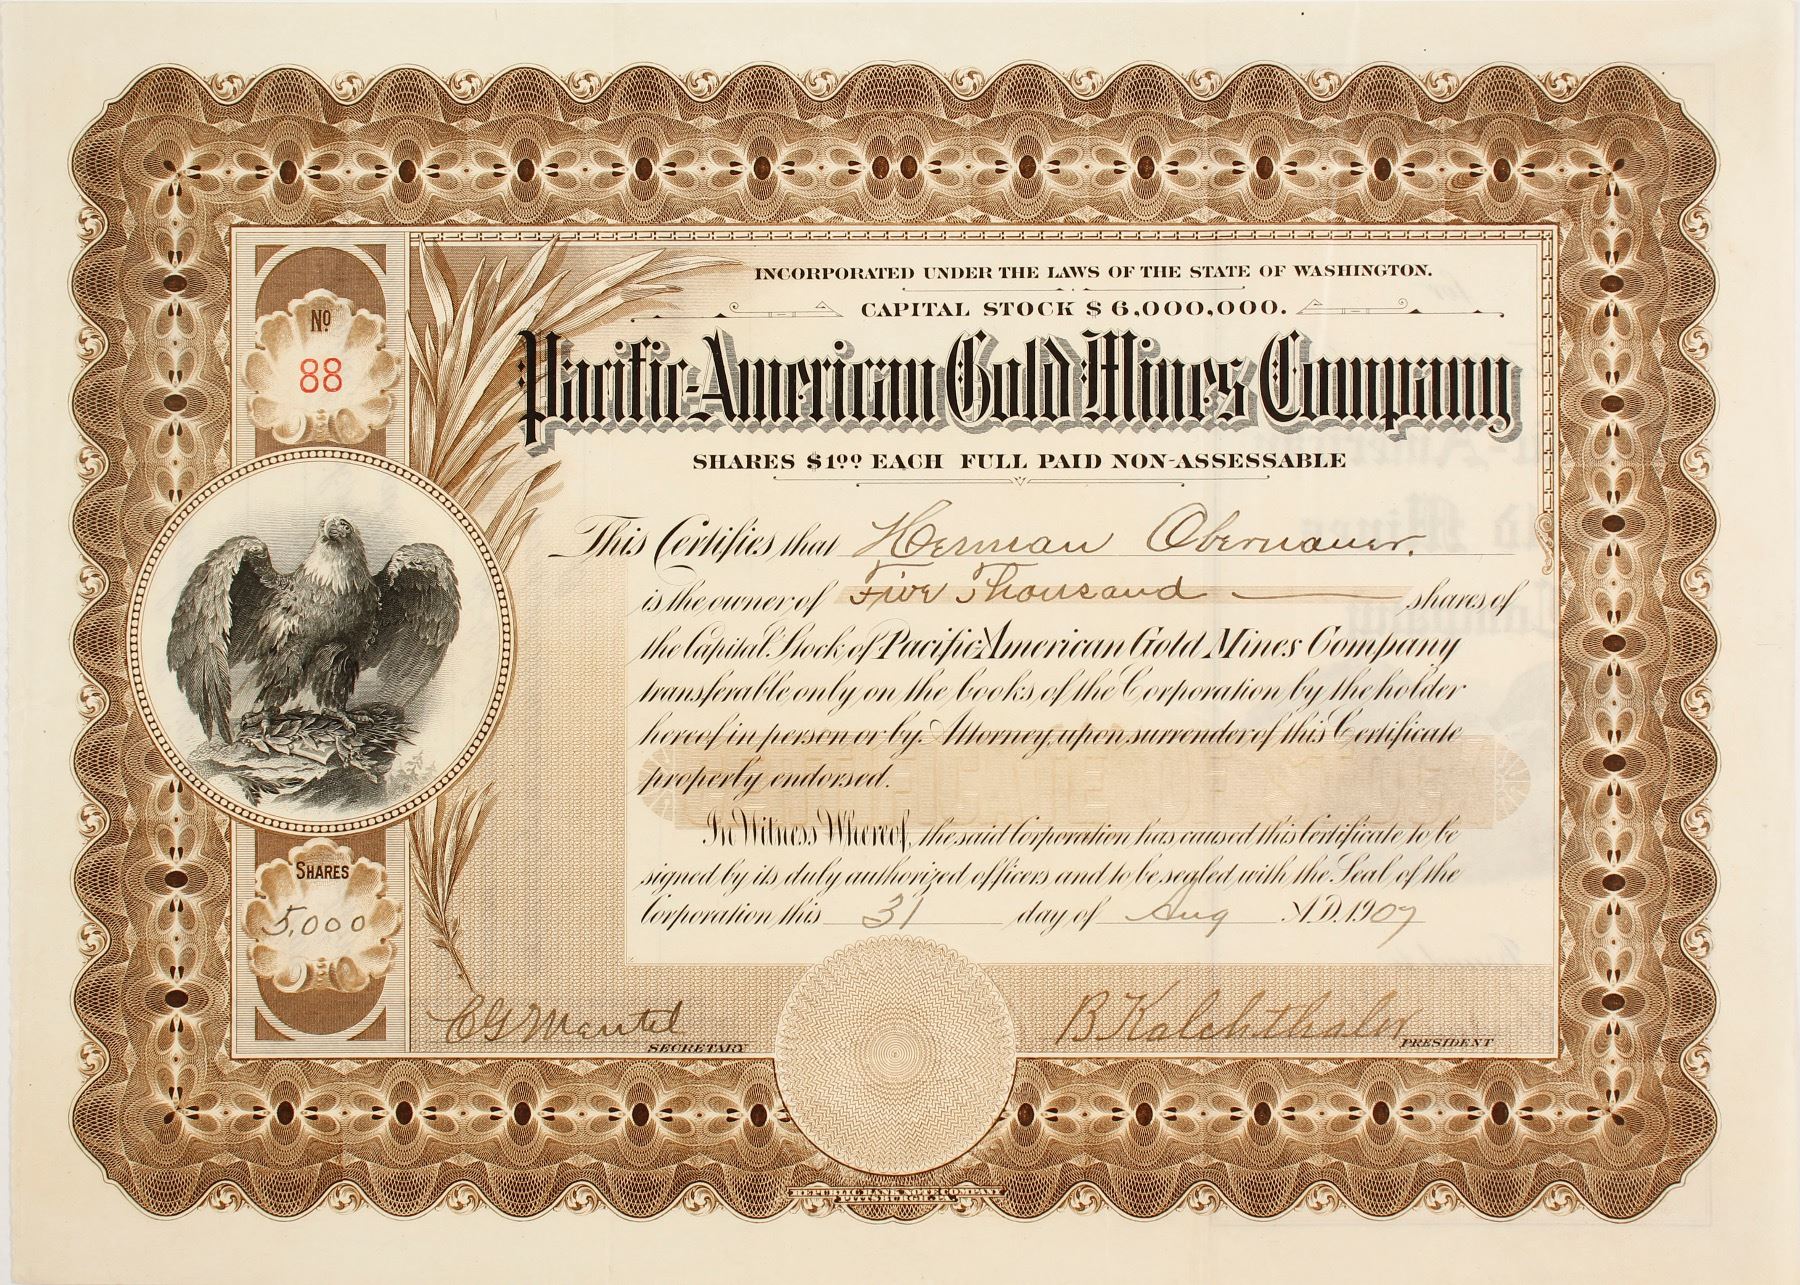 INCORPORATED UNDER THE LAWS OF THE STATE OF WASHINGTON.
CAPITAL STOCK $6,000,000.
No
88
Pacific-American Gold Mines Company
SHARES $1.00 EACH FULL PAID NON-ASSESSABLE
This Certifies that Herman Obernauer.
is the owner of Five Thousand shares of
the Capital Stock of Pacific-American Gold Mines Company
transferable only on the books of the Corporation by the holder
hereof in person or by Attorney, upon surrender of this Certificate
properly endorsed.
In Witness Whereof, the said Corporation has caused this Certificate to be
signed by its duly authorized officers and to be sealed with the Seal of the
Corporation this 31 day of Aug A.D. 1907
SHARES
5,000
C G Mantel
SECRETARY
B Kalchthaler
PRESIDENT
REPUBLIC BANK NOTE COMPANY
PITTSBURGH, PA.